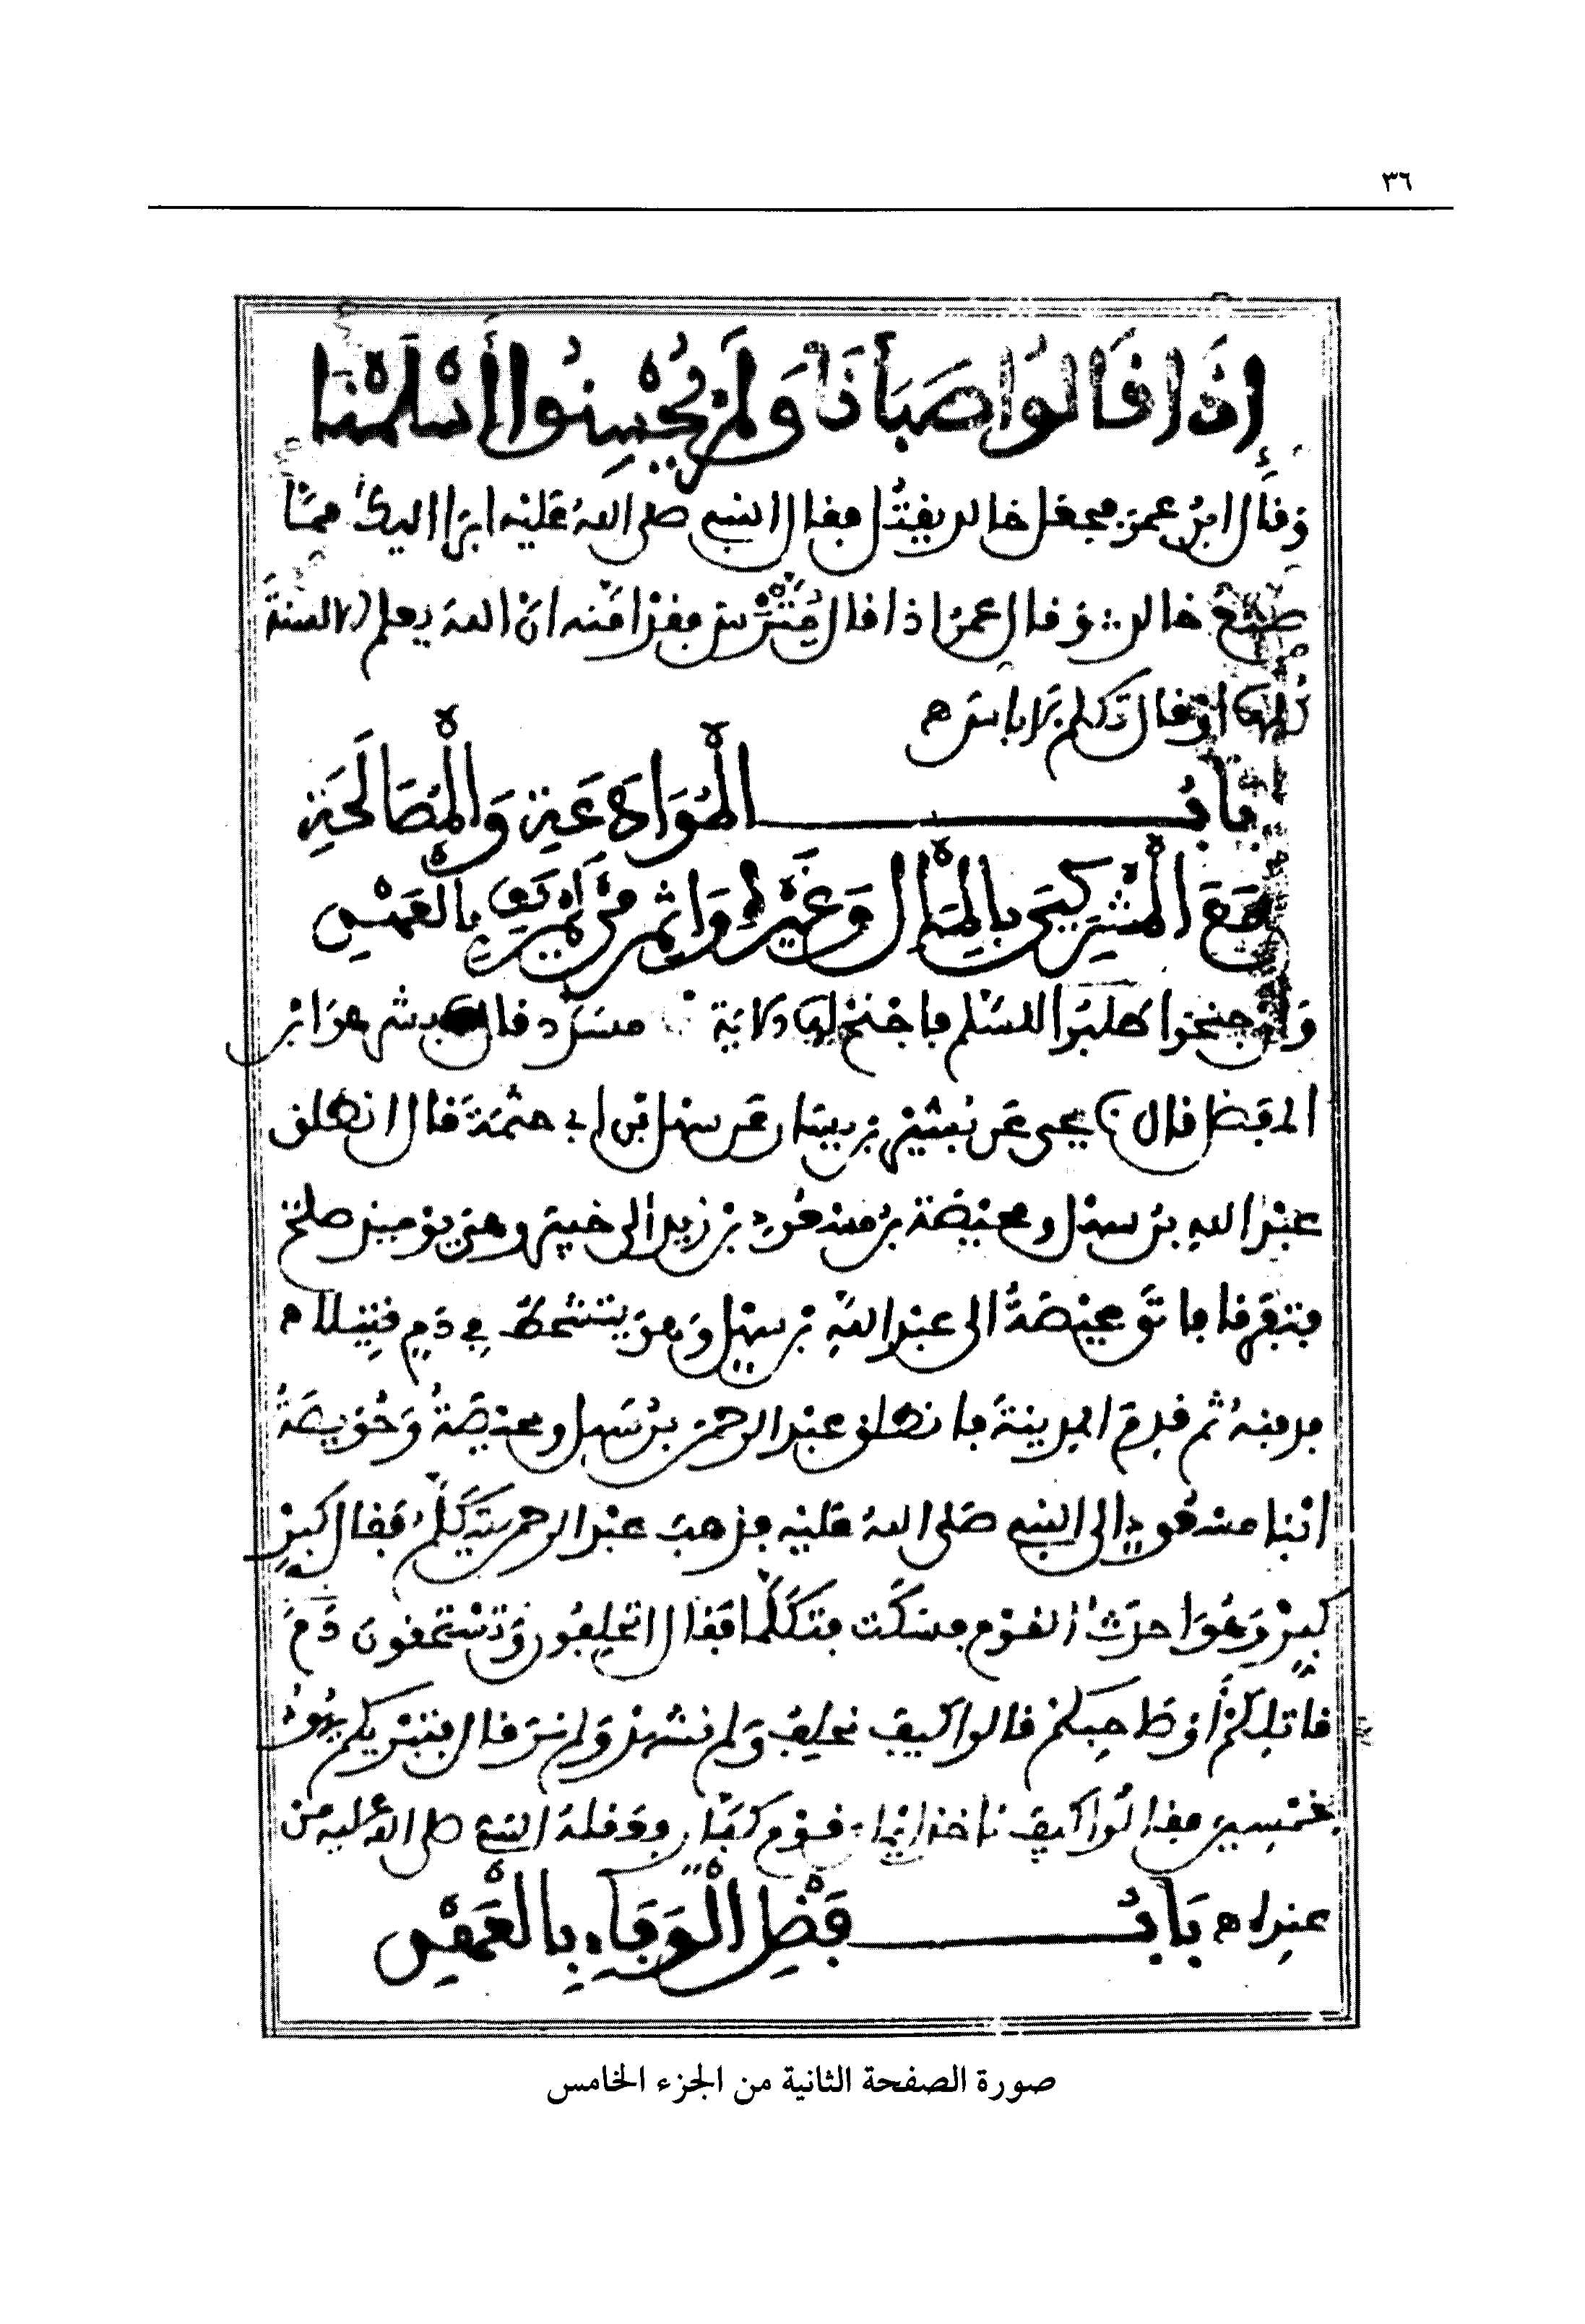 ٣٦
إِذَا قَالُوا صَبَأْنَا وَلَمْ يُحْسِنُوا أَسْلَمْنَا
وقال ابن عمر فجعل خالد يقتل فقال النبي صلى الله عليه ابرا اليك مما
صنع خالد وقال عمر اذا قال مترس فقد امنه ان الله يعلم الالسنة
كلها او قال تكلم لا باس ه
باب الْمُوَادَعَةِ وَالْمُصَالَحَةِ
مَعَ الْمُشْرِكِينَ بِالْمَالِ وَغَيْرِهِ وَإِثْمِ مَنْ لَمْ يَفِ بِالْعَهْدِ
وَإن جنحوا طلبوا للسلم فاجنح لها الاية مسدد قال بشر هو ابن
المفضل قال يحيى عن بشير بن يسار عن سهل بن ابي حثمة قال انطلق
عبد الله بن سهل ومحيصة بن مسعود بن زيد الى خيبر وهي يومئذ صلح
فتفرقا فاتى محيصة الى عبد الله بن سهل وهو يتشحط في دم قتيلا ه
فدفنه ثم قدم المدينة فانطلق عبد الرحمن بن سهل ومحيصة وحويصة
ابنا مسعود الى النبي صلى الله عليه فذهب عبد الرحمن يتكلم فقال كبر
كبر وهو احدث القوم فسكت فتكلما فقال اتحلفون وتستحقون دم
قاتلكم أو صاحبكم قالوا كيف نحلف ولم نشهد ولم نر قال فتبريكم يهود
بخمسين فقالوا كيف ناخذ ايمان قوم كفار فعقله النبي صلى الله عليه من
عنده ه بَابُ فَضْلِ الْوَفَاءِ بِالْعَهْدِ
صورة الصفحة الثانية من الجزء الخامس